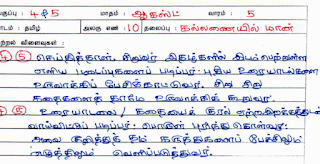 வகுப்பு : 4 & 5 மாதம் : ஆகஸ்ட் வாரம் : 5
பாடம் : தமிழ் அலகு எண் : 10 தலைப்பு : கல்லணையில் மான்
கற்றல் விளைவுகள் :
4 5 செய்தித்தாள், சிறுவர் இதழ்களில் இடம்பெற்றுள்ள
எளிய படைப்புகளைப் படிப்பர். புதிய உரையாடல்களை
உருவாக்கிப் பேசிக்காட்டுவர். சிறு சிறு
கதைகளைத் தாமே உருவாக்கிக் கூறுவர்
4 5 உரையாடல் / கதையைக் கால
வாய்விட்டுப் படிப்பர். பொருள் புரிந்து கொள்வர்.
அவை குறித்துத் தம் கருத்துகளைப் பேச்சிலும்
எழுத்திலும் வெளிப்படுத்துவர்.